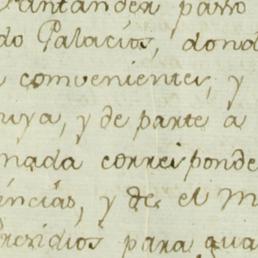 antander passo
do Palacios, dond
convenientes, y
uya, y de parte a
nada corresponde
encias, y de el M
Presidios para qua